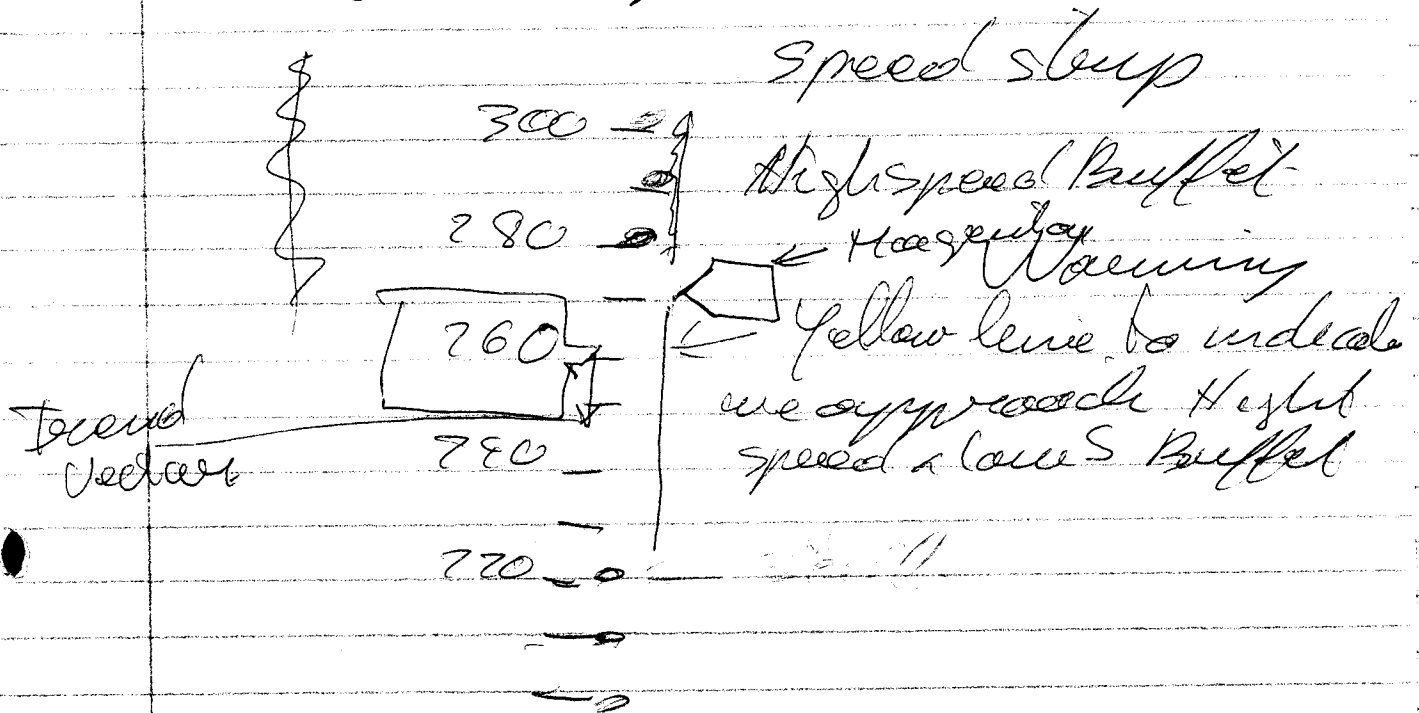 Speed strip
300
Highspeed Buffet
280
Warning
260
Yellow line to indicate
we approach Hight
Trend
speed & low S Buffet
240
Vector
220